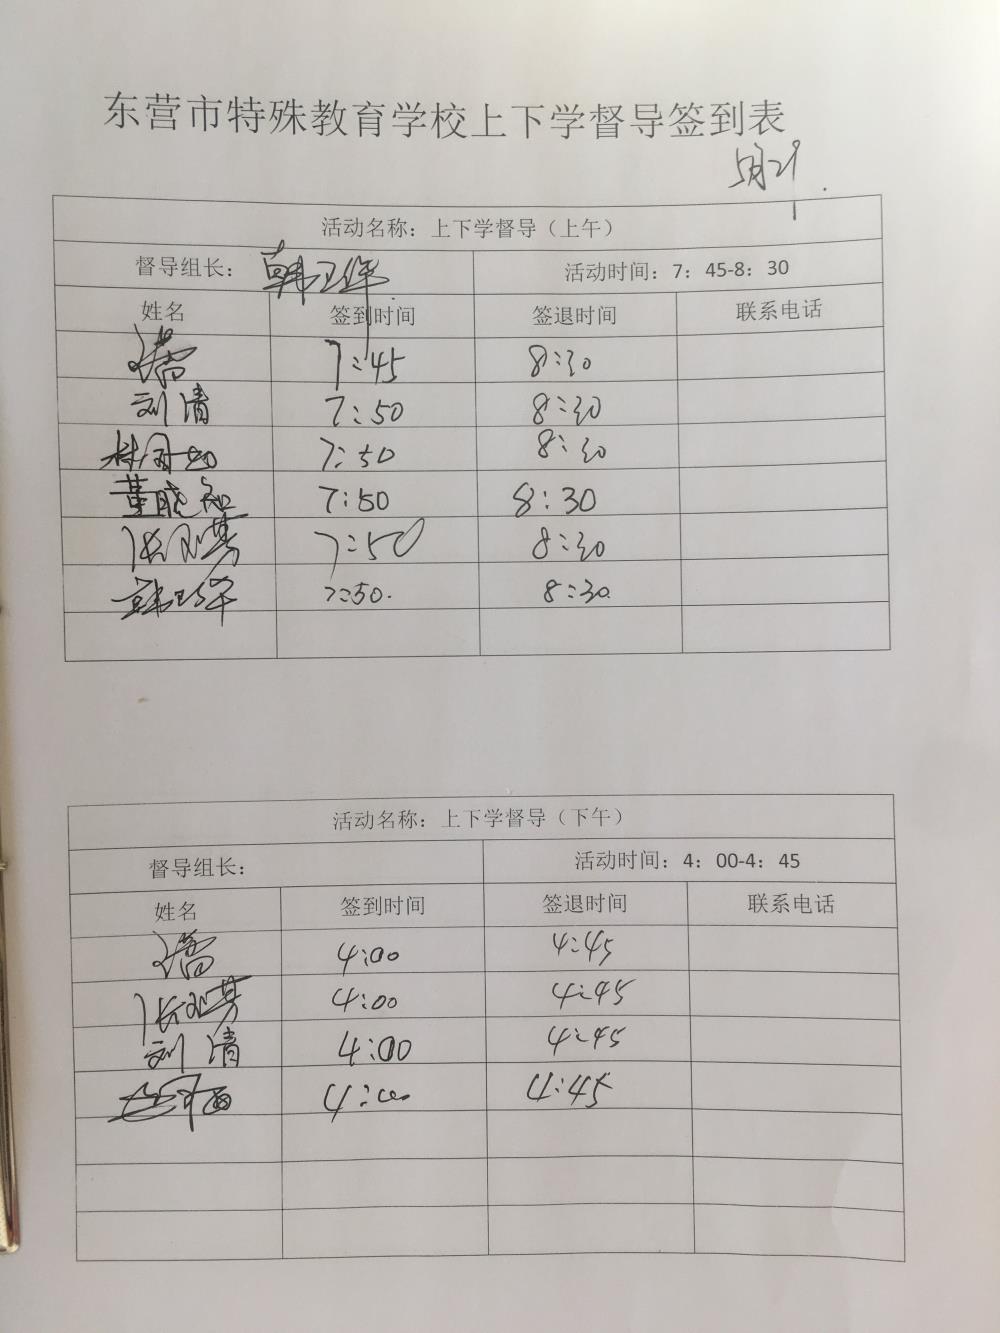 东营市特殊教育学校上下学督导签到表
5月29
活动名称：上下学督导（上午）
督导组长：韩卫华 活动时间：7：45-8：30
姓名 签到时间 签退时间 联系电话
7:45 8:30
刘清 7:50 8:30
7:50 8:30
董晓 7:50 8:30
张 7:50 8:30
韩卫华 7:50. 8:30.
活动名称：上下学督导（下午）
督导组长： 活动时间：4：00-4：45
姓名 签到时间 签退时间 联系电话
4:00 4:45
张 4:00 4:45
刘清 4:00 4:45
4:00 4:45